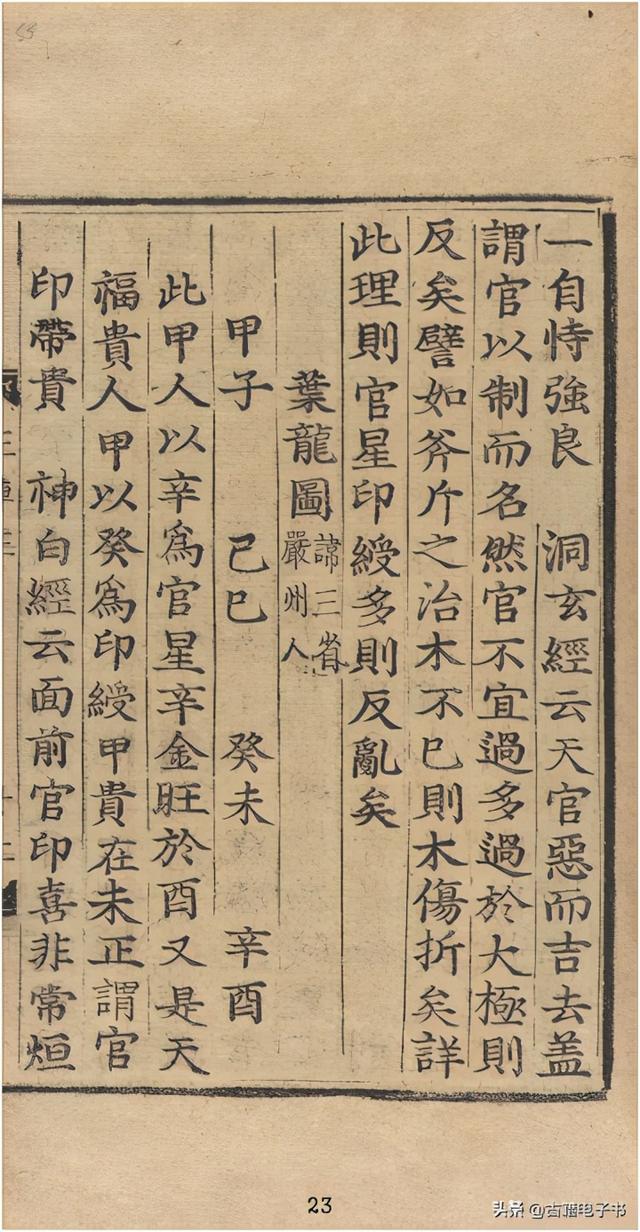 一自恃強良　洞玄經云天官惡而吉去盖
謂官以制而名然官不宜過多過於大極則
反矣譬如斧斤之治木不已則木傷折矣詳
此理則官星印綬多則反亂矣
葉龍圖
諱三省
嚴州人
甲子　己巳　癸未　辛酉
此甲人以辛爲官星辛金旺於酉又是天
福貴人甲以癸爲印綬甲貴在未正謂官
印帶貴　神白經云面前官印喜非常烜
23
头条@古籍电子书